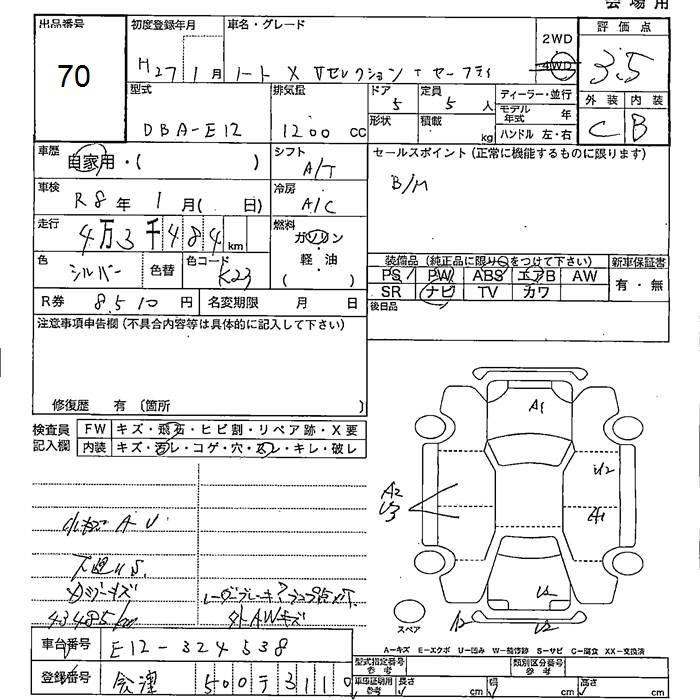 会場用
出品番号
70
初度登録年月
H27 1月
車名・グレード
ノート X Vセレクション + セーフティ
2WD
4WD
評価点
3.5
外装 内装
C B
型式
DBA-E12
排気量
1200 cc
ドア
5
定員
5 人
形状
積載
kg
ディーラー・並行
モデル年式 年
ハンドル 左・右
車歴
自家用・( )
シフト
A/T
セールスポイント(正常に機能するものに限ります)
B/M
車検
R8年 1月( 日)
冷房
A/C
走行
4万3千484km
燃料
ガソリン
軽・油
( )
色
シルバー
色替
色コード
K23
装備品(純正品に限り○をつけて下さい)
新車保証書
PS PW ABS エアB AW
SR ナビ TV カワ
有・無
R券 8510円
名変期限 月 日
後日品
注意事項申告欄(不具合内容等は具体的に記入して下さい)
修復歴 有 〔箇所 〕
検査員記入欄
FW キズ・飛石・ヒビ割・リペア跡・X要
内装 キズ・汚レ・コゲ・穴・スレ・キレ・破レ
小キズ A U
下廻りS
43485km
レーダーブレーキ
外AWキズ
A1
A2
U3
U2
A1
U2
A2
U2
スペア
A-キズ E-エクボ U-凹み W-補修跡 S-サビ C-腐食 XX-交換済
車台番号 E12-324538
登録番号 会津 500 テ 3110
型式指定番号 参考
類別区分番号 参考
車庫証明用 参考
長さ cm
幅 cm
高さ cm